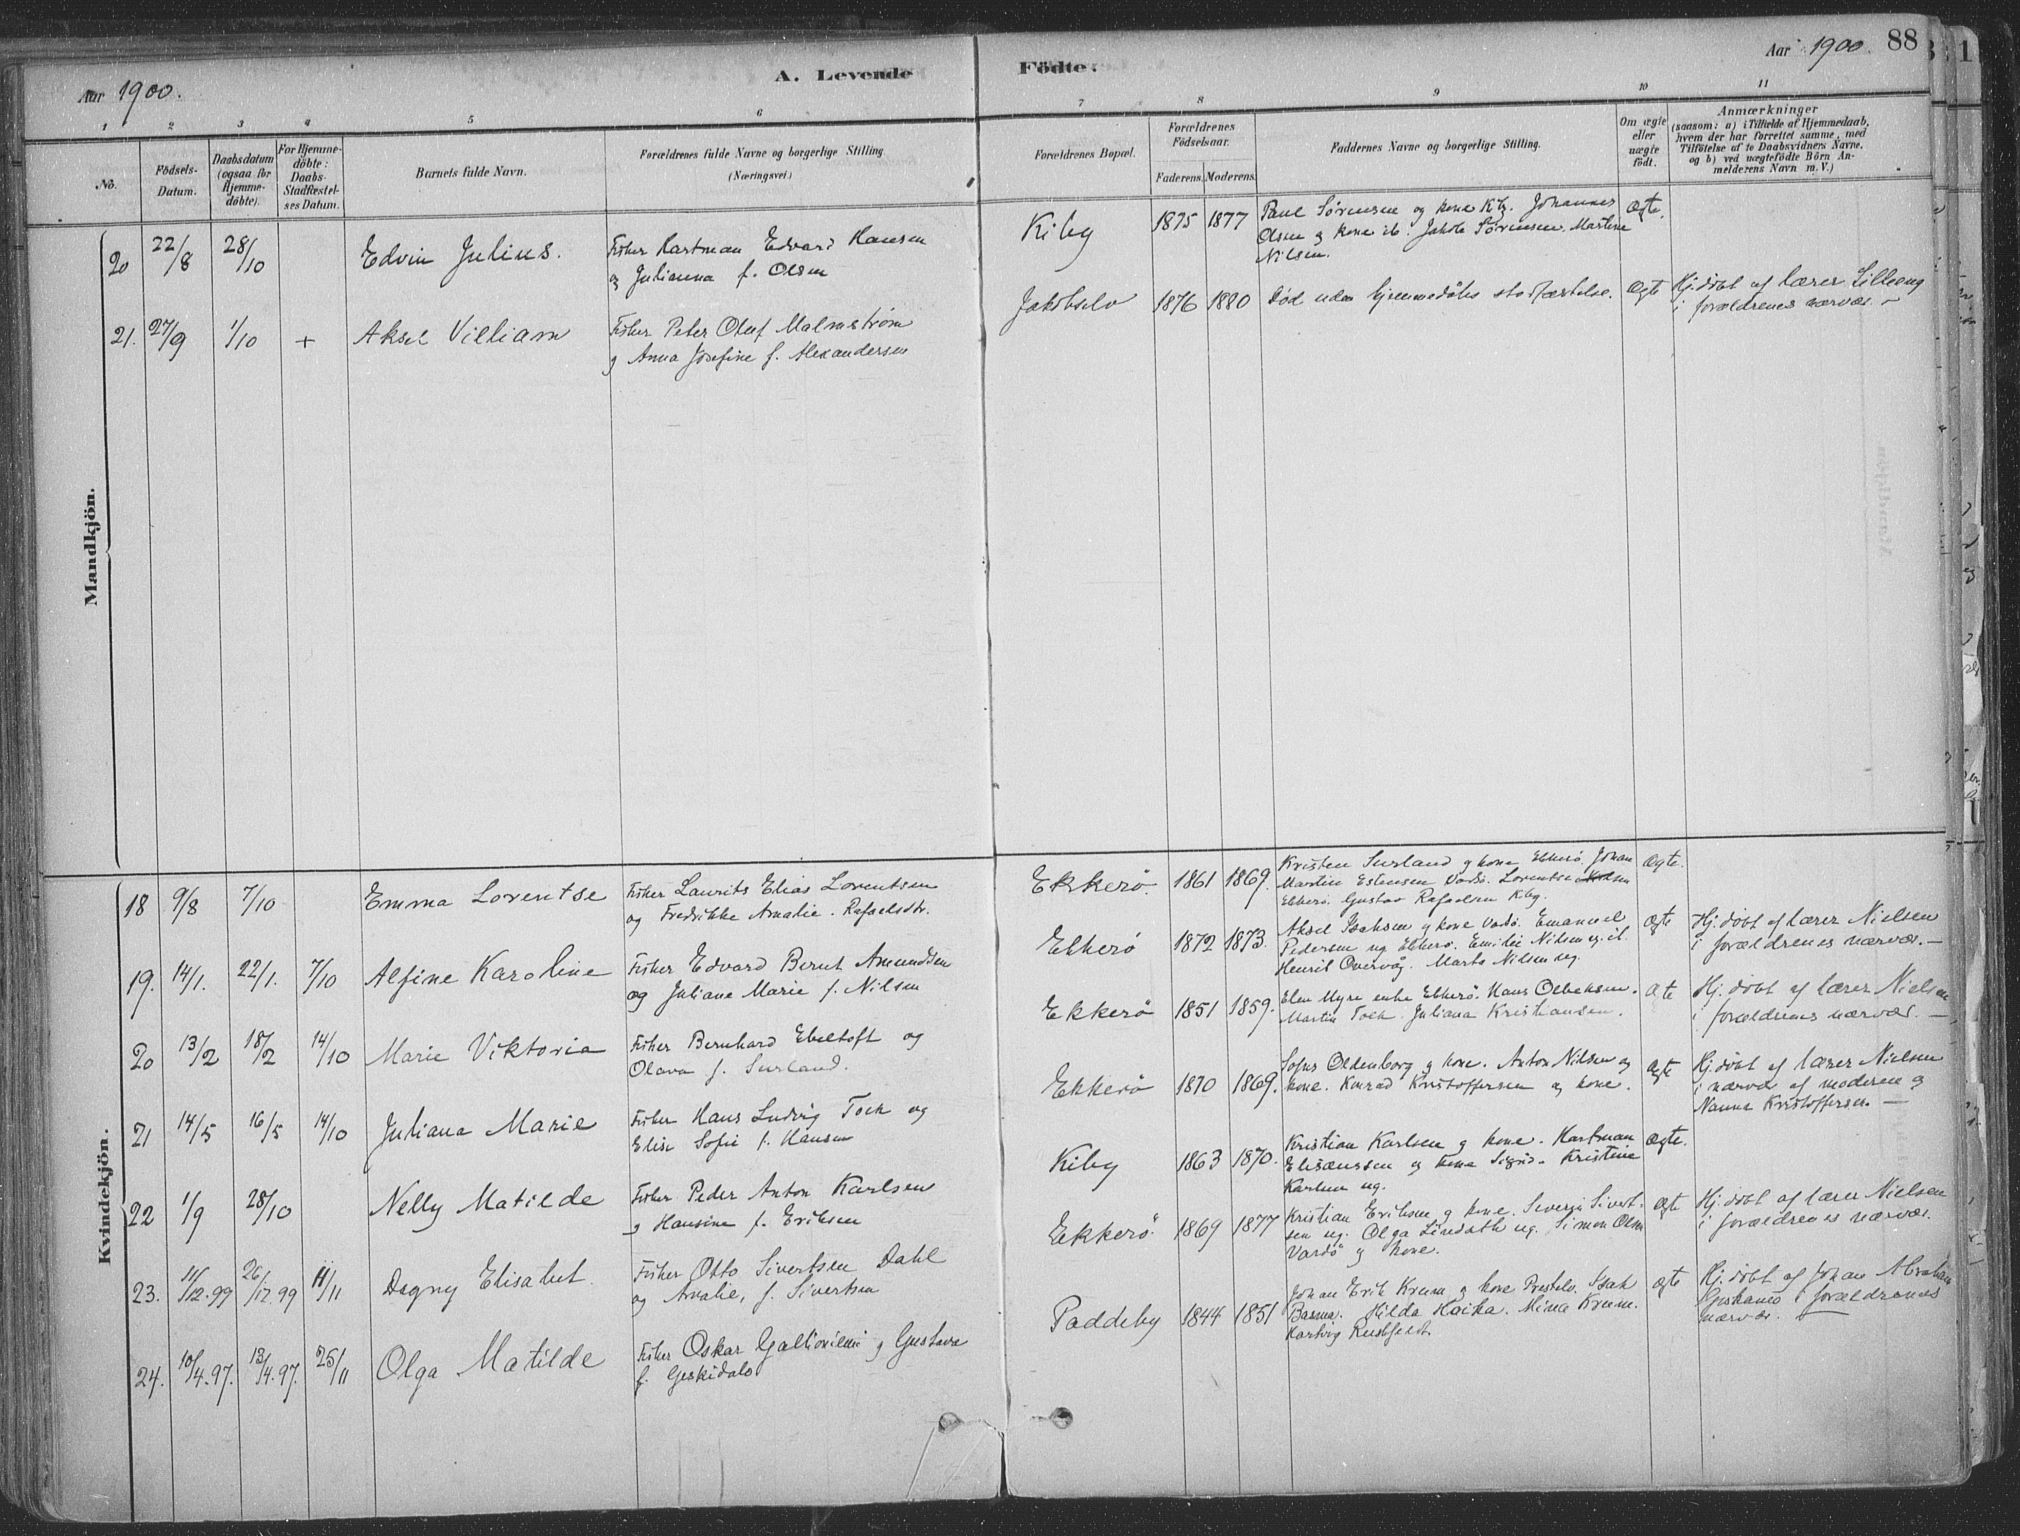 Aar 1900.
A. Levende
Födte.
Aar 1900. 88
1 2 3 4 5 6 7 8 9 10 11
No.
Födsels-
Datum.
Daabsdatum
(ogsaa for
Hjemme-
döbte).
For Hjemme-
döbte:
Daabs-
Stadfæstel-
ses Datum.
Barnets fulde Navn.
Forældrenes fulde Navne og borgerlige Stilling
(Næringsvei.)
Forældrenes Bopæl.
Forældrenes
Födselsaar.
Faderens. Moderens.
Faddernes Navne og borgerlige Stilling.
Om ægte
eller
uægte
födt.
Anmærkninger
(saasom: a) i Tilfælde af Hjemmedaab,
hvem der har forrettet samme, med
Tilföielse af to Daabsvidners Navne,
og b) ved uægtefödte Börn An-
melderens Navn m. V.)
Mandkjön.
20 22/8 28/10 Edvin Julius.
Fisker Hartman Edvard Hansen
og Julianna f. Olsen
Kiby 1875 1877
Paul Sörensen og kone Kby. Johannes
Olsen og kone ib. Jakob Sörensen. Martine
Nilsen.
Ægte.
21. 27/9 1/10 + Aksel Villiam
Fisker Peter Oluf Malmström
og Anna Josefine f. Alexandersen
Jakobselv 1876 1880
Död uden hjemmedåbs stadfæstelse.
Ægte
Hj. döbt af lærer Lilleeng
i forældrenes nærvær.
Kvindekjön.
18 9/8 7/10 Emma Lorentse
Fisker Laurits Elias Lorentsen
og Fredrikke Amalie Rafaelsdtr.
Ekkerö. 1861 1869.
Kristen Surland og kone Ekkerö. Johan
Martin Estensen Vadsö. Lorentse
Ekkerö. Gustav Rafaelsen Kby.
Ægte.
19. 14/1. 22/1. 7/10 Alfine Karoline
Fisker Edvard Bernt Amundsen
og Juliane Marie f. Nilsen
Ekkerö 1872 1873.
Aksel Isaksen og kone Vadsö. Emanuel
Pedersen ug Ekkerö. Emilie Nilsen ug. ib.
Henrik Overvåg. Marta Nilsen ug.
Ægte
Hj. döbt af lærer Nielsen
i forældrenes nærvær.
20 13/2 18/2 14/10 Marie Viktoria
Fisker Bernhard Ebeltoft og
Olava f. Surland.
Ekkerö 1851 1859.
Elen Myre enke Ekkerö. Hans
Martin Tock. Juliana Kristiansen.
Ægte
Hj. döbt af lærer Nielsen
i forældrenes nærvær.
21 14/5 16/5 14/10 Juliana Marie
Fisker Hans Ludvig Tock og
Elise Sofie f. Hansen
Ekkerö 1870 1869.
Sofus Oldenborg og kone. Anton Nilsen og
kone. Konrad Kristoffersen og kone.
Ægte
Hj. döbt af lærer Nielsen
i nærvær af moderen og
Nanna Kristoffersen.
22 1/9 28/10 Nelly Matilde
Fisker Peder Anton Karlsen
og Hansine f. Eriksen
Kiby 1863 1870.
Kristian Karlsen og kone. Hartman
Eliseussen og kone Sigrid. Kristine
Karlsen ug.
Ægte.
23. 11/12.99 26/12.99 11/11 Dagny Elisabet.
Fisker Otto Sivertsen Dahl
og Amalie, f. Sivertsen
Ekkerö. 1869 1877
Kristian Eriksen og kone. Severin Sivert-
sen ug. Olga Lindath ug. Simon Olsen
Vardö og kone.
Ægte
Hj. döbt af lærer Nielsen
i forældrenes nærvær.
24. 10/4.97. 13/4.97. 25/11 Olga Matilde
Fisker Oskar og Gustava
f.
Paddeby 1844 1851
Johan Erik Krum og kone Isak
Hilda Hoika. Mina Krum.
Hartvig Rushfeldt
Ægte
Hj. döbt af Johan Abraham
i forældrenes
nærvær.